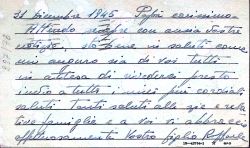 31 Dicembre 1945 Papà carissimo.
Attendo sempre con ansia vostre
notizie, sto bene vi saluto come
mi auguro sia di voi tutti
in attesa di rivederci presto
invio a tutti i miei più cordiali
saluti Tanti saluti alle zie e rela-
tive famiglie e a voi vi abbraccio
affettuosamente Vostro figlio